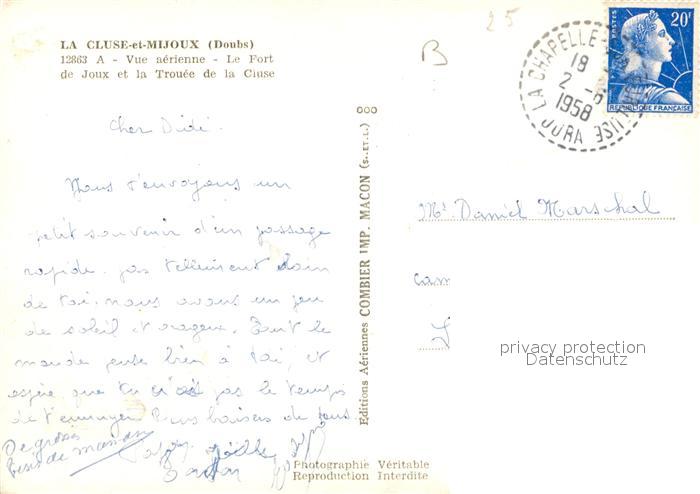 LA CLUSE-et-MIJOUX (Doubs)
12863 A - Vue aérienne - Le Fort
de Joux et la Trouée de la Cluse
25
B
LA CHAPELLE
18
2 -
1958
JURA
POSTES
20F
REPUBLIQUE FRANÇAISE
Cher Didi.
Nous t'envoyons un
petit souvenir d'un passage
rapide. pas tellement loin
de toi. nous avons un peu
de soleil et orageux. Tout le
monde pense bien à toi, et
espère que tu n'as pas le temps
de t'ennuyer baisers de tous
De grosses
bises de maman
Joëlle
Editions Aériennes COMBIER IMP. MACON (S.-ET-L.)
Mr Daniel Marschal
privacy protection
Datenschutz
Photographie Véritable
Reproduction Interdite